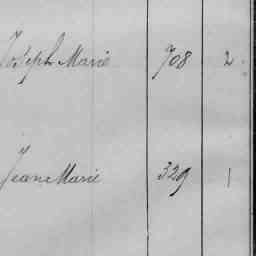 Joseph Marie 708 2
Jean Marie 329 1